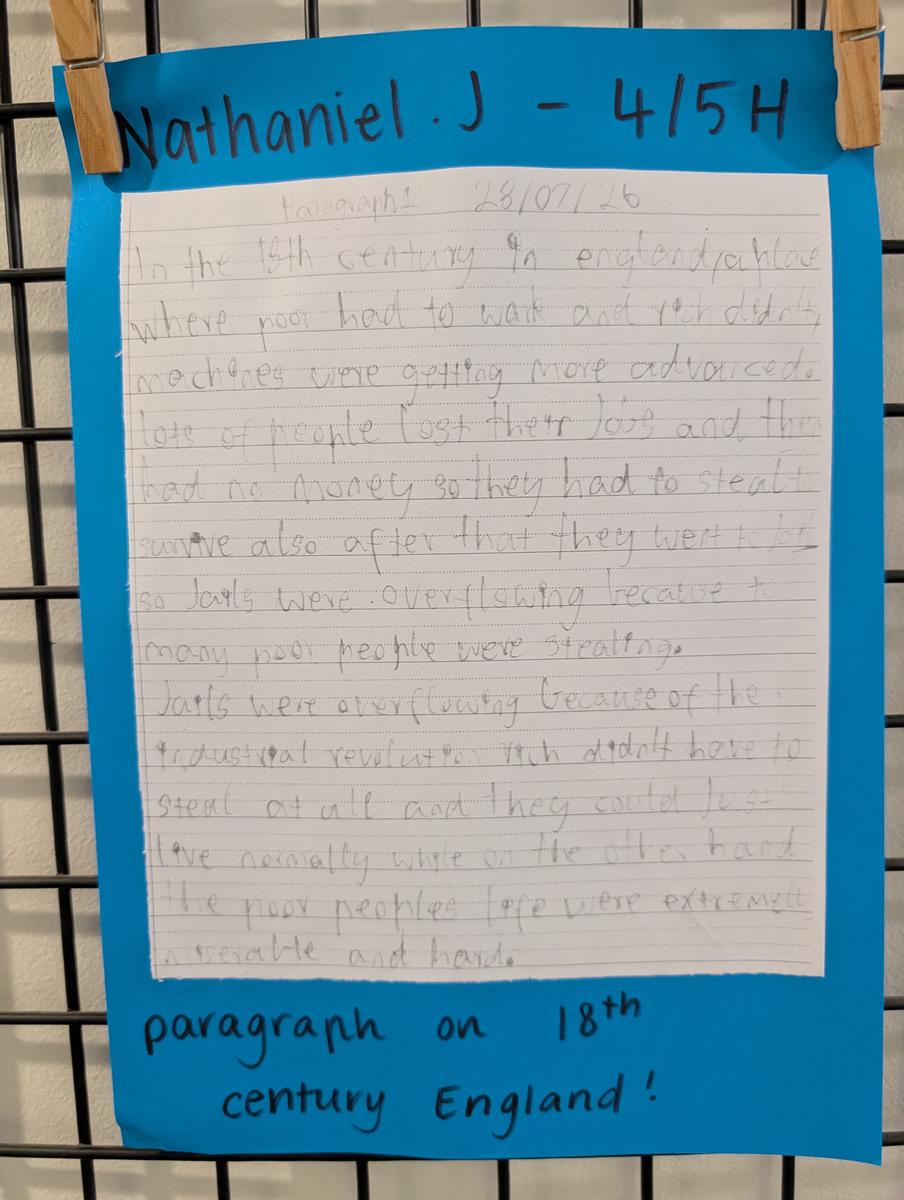 Nathaniel . J - 4/5 H
Paragraph 1 28/07/26
In the 18th century in england, a place
where poor had to work and rich didn't,
machines were getting more advanced.
lots of people lost their Jobs and they
had no money so they had to steal to
survive also after that they went to
so Jails were overflowing because to
many poor people were stealing.
Jails were overflowing because of the
industrial revolution rich didn't have to
steal at all and they could Just
live normally while on the other hand
the poor peoples life were extremely
miserable and hard.
paragraph on 18th
century England!